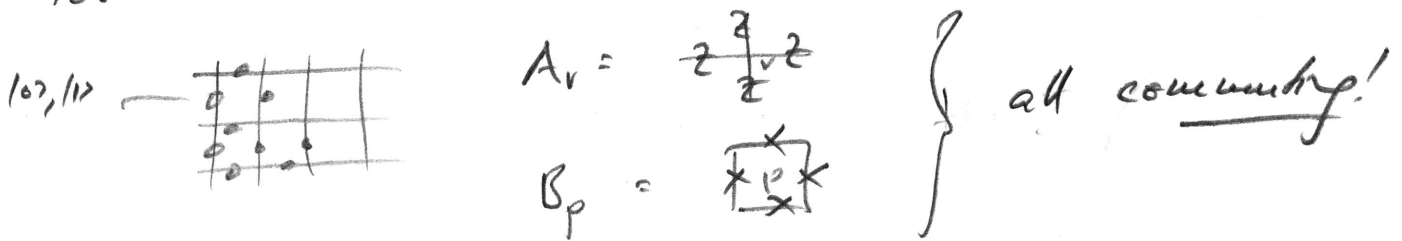 |0>, |1>
A_v = Z Z v Z Z
B_p = X X p X X
all commuting!